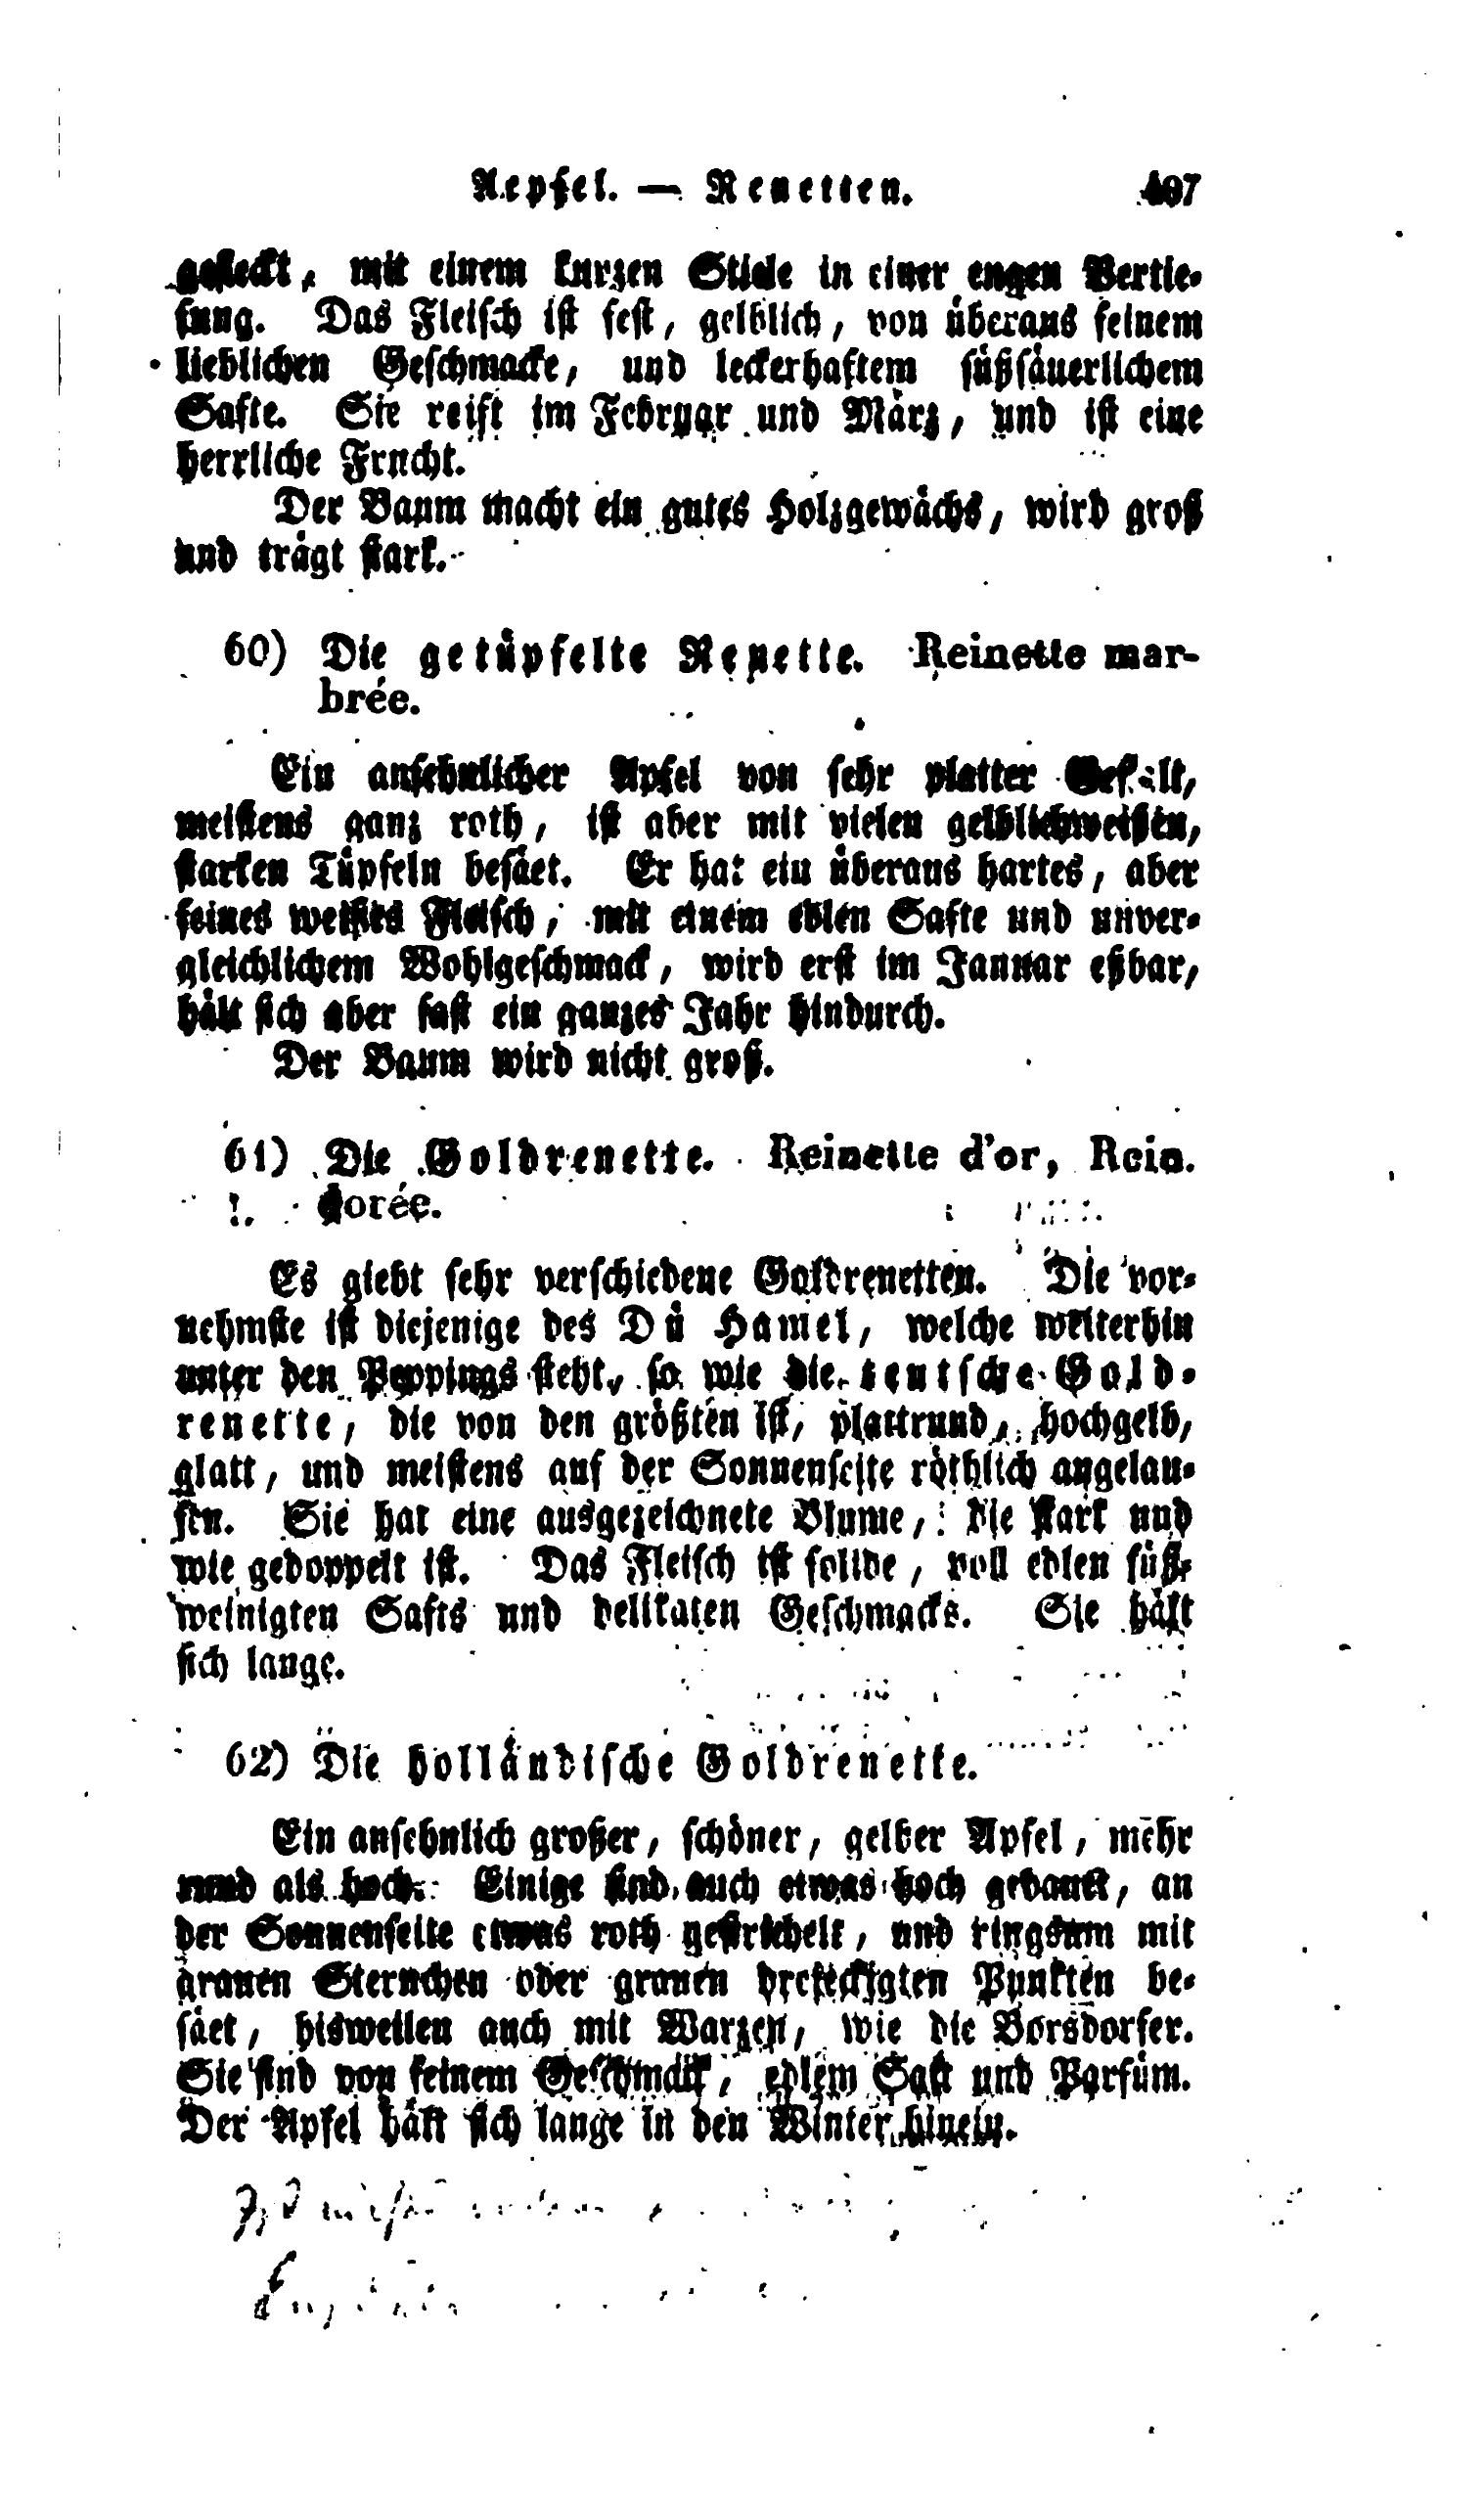 Aepfel. — Renetten. 407
gefleckt, mit einem kurzen Stiele in einer engen Vertie-
fung. Das Fleisch ist fest, gelblich, von überaus feinem
lieblichen Geschmacke, und leckerhaftem süßsäuerlichem
Safte. Sie reift im Februar und März, und ist eine
herrliche Frucht.
Der Baum macht ein gutes Holzgewächs, wird groß
und trägt stark.
60) Die getüpfelte Renette. Reinette mar-
brée.
Ein ansehnlicher Apfel von sehr platter Gestalt,
meistens ganz roth, ist aber mit vielen gelblichweißen,
starken Tüpfeln besäet. Er hat ein überaus hartes, aber
feines weißes Fleisch, mit einem edlen Safte und unver-
gleichlichem Wohlgeschmack, wird erst im Januar eßbar,
hält sich aber fast ein ganzes Jahr hindurch.
Der Baum wird nicht groß.
61) Die Goldrenette. Reinette d'or, Rein.
dorée.
Es giebt sehr verschiedene Goldrenetten. Die vor-
nehmste ist diejenige des Dü Hamel, welche weiterhin
unter den Peppings steht, so wie die teutsche Gold-
renette, die von den größten ist, plattrund, hochgelb,
glatt, und meistens auf der Sonnenseite röthlich angelau-
fen. Sie hat eine ausgezeichnete Blume, die stark und
wie gedoppelt ist. Das Fleisch ist solide, voll edlen süß-
weinigten Safts und delikaten Geschmacks. Sie hält
sich lange.
62) Die holländische Goldrenette.
Ein ansehnlich großer, schöner, gelber Apfel, mehr
rund als hoch. Einige sind auch etwas hoch gebauet, an
der Sonnenseite etwas roth gestrichelt, und ringsum mit
grauen Sternchen oder grauen dreieckigten Punkten be-
säet, bisweilen auch mit Warzen, wie die Borsdorfer.
Sie sind von feinem Geschmack, edlem Saft und Parfüm.
Der Apfel hält sich lange in den Winter hinein.